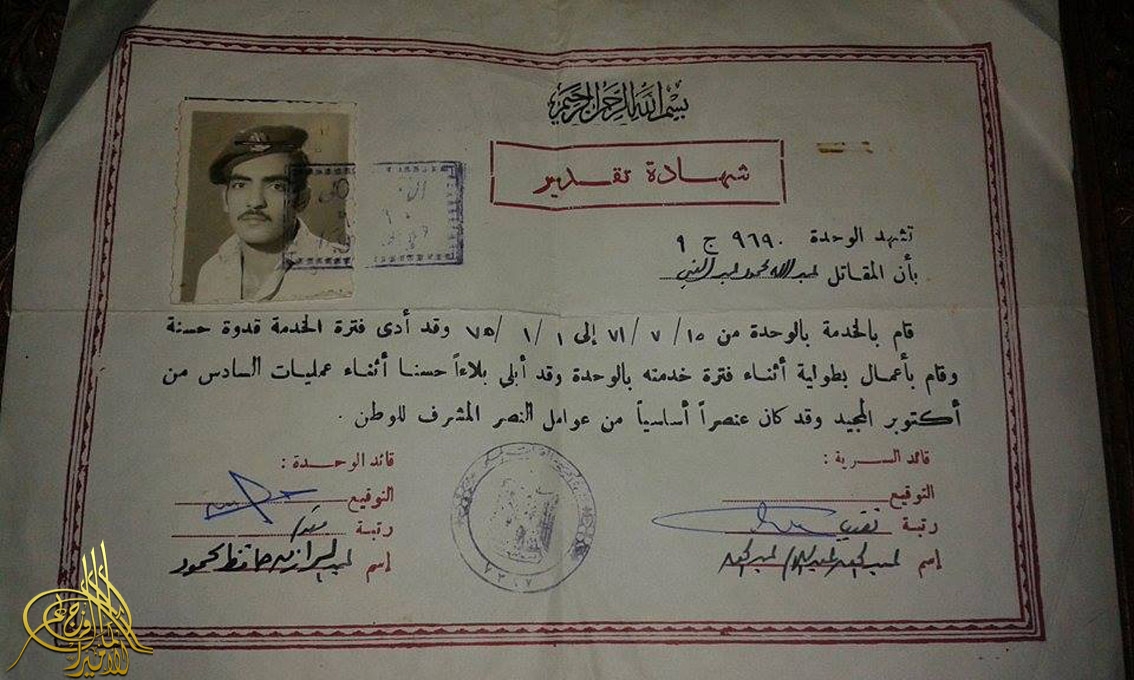 بسم الله الرحمن الرحيم
شهادة تقدير
تشهد الوحدة ٩٦٩٠ ج ٩
بأن المقاتل عبد الله محمود عبد النبي
قام بالخدمة بالوحدة من ١٥ / ٧ / ٧١ إلى ١ / ١ / ٧٥ وقد أدى فترة الخدمة قدوة حسنة
وقام بأعمال بطولية أثناء فترة خدمته بالوحدة وقد أبلي بلاءاً حسنا أثناء عمليات السادس من
أكتوبر المجيد وقد كان عنصراً أساسياً من عوامل النصر المشرف للوطن .
قائد السرية :
التوقيع
رتبة نقيب
إسم
قائد الوحدة :
التوقيع
رتبة مقدم /
إسم حافظ محمود